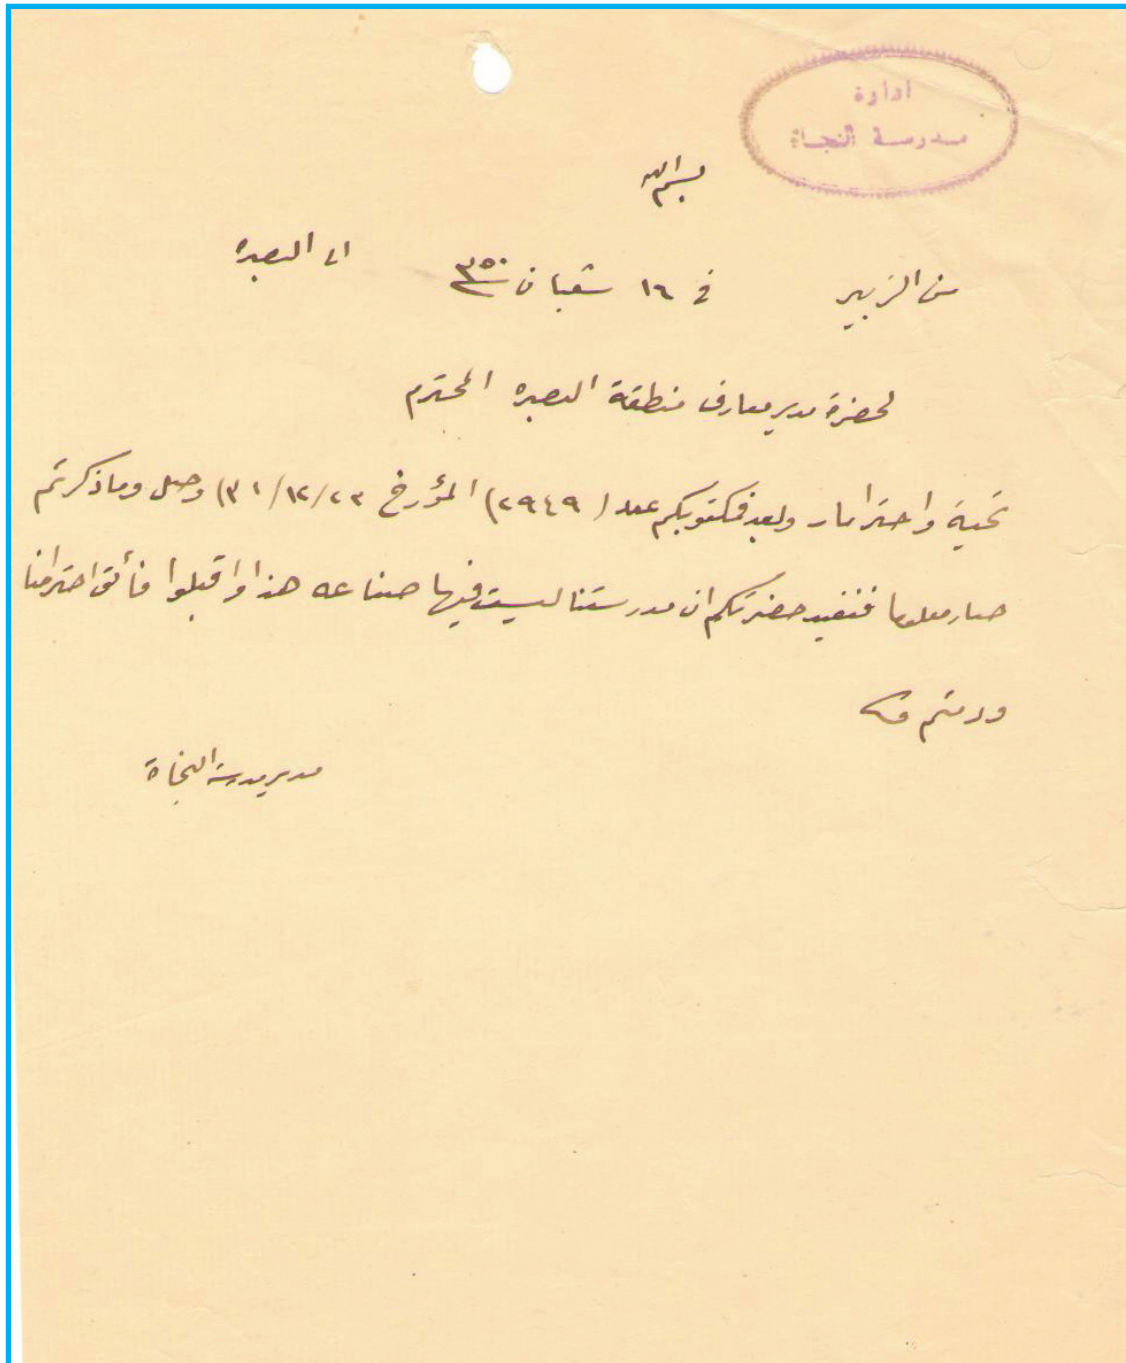 ادارة
مدرسة النجاة
بسم الله
من الزبير في ١٦ شعبان ٣٥٠ الى البصره
لحضرة مدير معارف منطقة البصره المحترم
تحية واحتراما وبعد فمكتوبكم عدد (٢٩٤٩) المؤرخ ٢٣/١٢/٣١) وصل وما ذكرتم
صار معلوما فنفيد حضرتكم ان مدرستنا ليست فيها صناعه هذا واقبلوا فائق احترامنا
ودمتم
مدير مدرسة النجاة